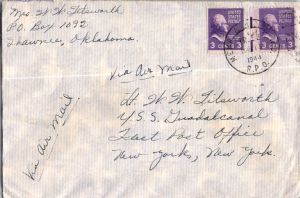 Mrs W W Titsworth
P.O. Box 1092
Shawnee, Oklahoma.
UNITED STATES
POSTAGE
3 CENTS 3
3 CENTS 3
1944
R.P.O.
Via Air Mail
Lt. W. W. Titsworth
U.S.S. Guadalcanal
Fleet Post Office
New York, New York.
Via Air Mail